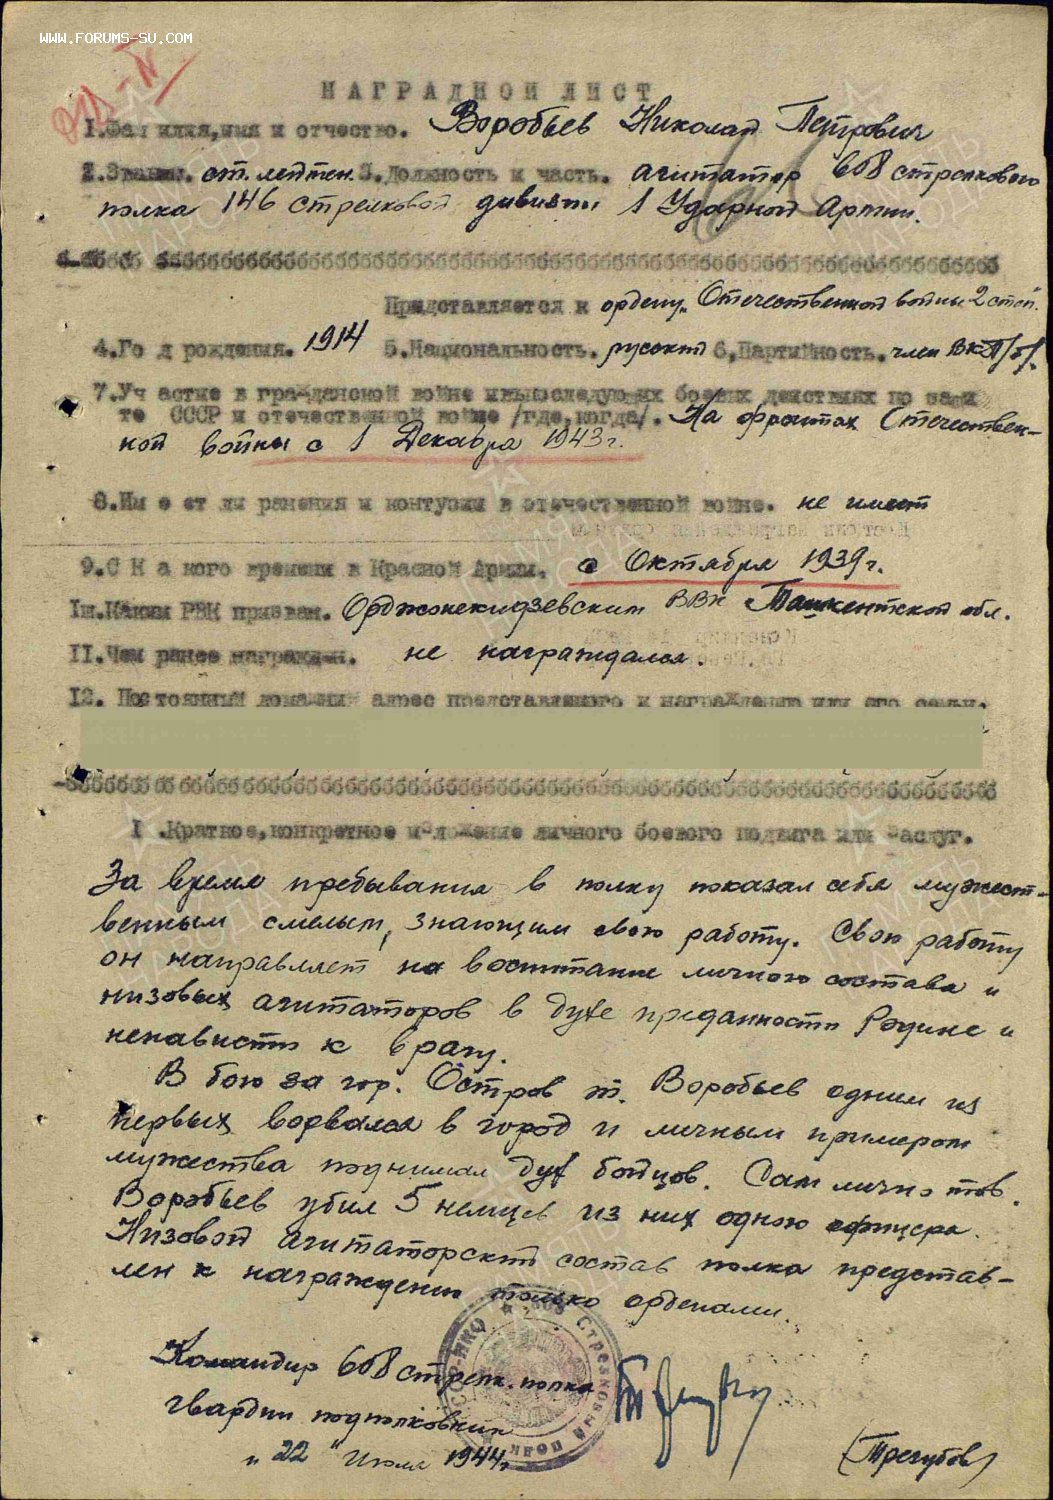 WWW.FORUMS-SU.COM
НАГРАДНОЙ ЛИСТ
1.Фамилия,имя и отчество. Воробьев Николай Петрович
2.Звание. ст. лейтен. 3.Должность и часть. агитатор 608 стрелкового
полка 146 стрелковой дивизии 1 Ударной Армии.
Представляется к ордену „Отечественной войны 2 степ."
4.Го д рождения. 1914 5.Национальность. русский 6.Партийность. член ВКП/б/.
7.Уч астие в гражданской войне и последующих боевых действиях по защи
те СССР и отечественной войне /где,когда/. На фронтах Отечествен-
ной войны с 1 Декабря 1943 г.
8.Им е ет ли ранения и контузии в отечественной войне. не имеет
9.С К а кого времени в Красной Армии. с Октября 1939 г.
10.Каким РВК призван. Орджонекидзевским РВК Ташкентской обл.
11.Чем ранее награжден. не награждался.
12. Постоянный домашний адрес представляемого к награждению или его семьи.
1 .Краткое,конкретное изложение личного боевого подвига или заслуг.
За время пребывания в полку показал себя мужест-
венным смелым, знающим свою работу. Свою работу
он направляет на воспитание личного состава и
низовых агитаторов в духе преданности Родине и
ненависти к врагу.
В бою за гор. Остров т. Воробьев одним из
первых ворвался в город и личным примером
мужества поднимал дух бойцов. Сам лично тов.
Воробьев убил 5 немцев из них одного офицера.
Низовой агитаторский состав полка представ-
лен к награждению только орденами.
Командир 608 стрелк. полка
гвардии подполковник
„22" Июля 1944 г.
(Трегубов)